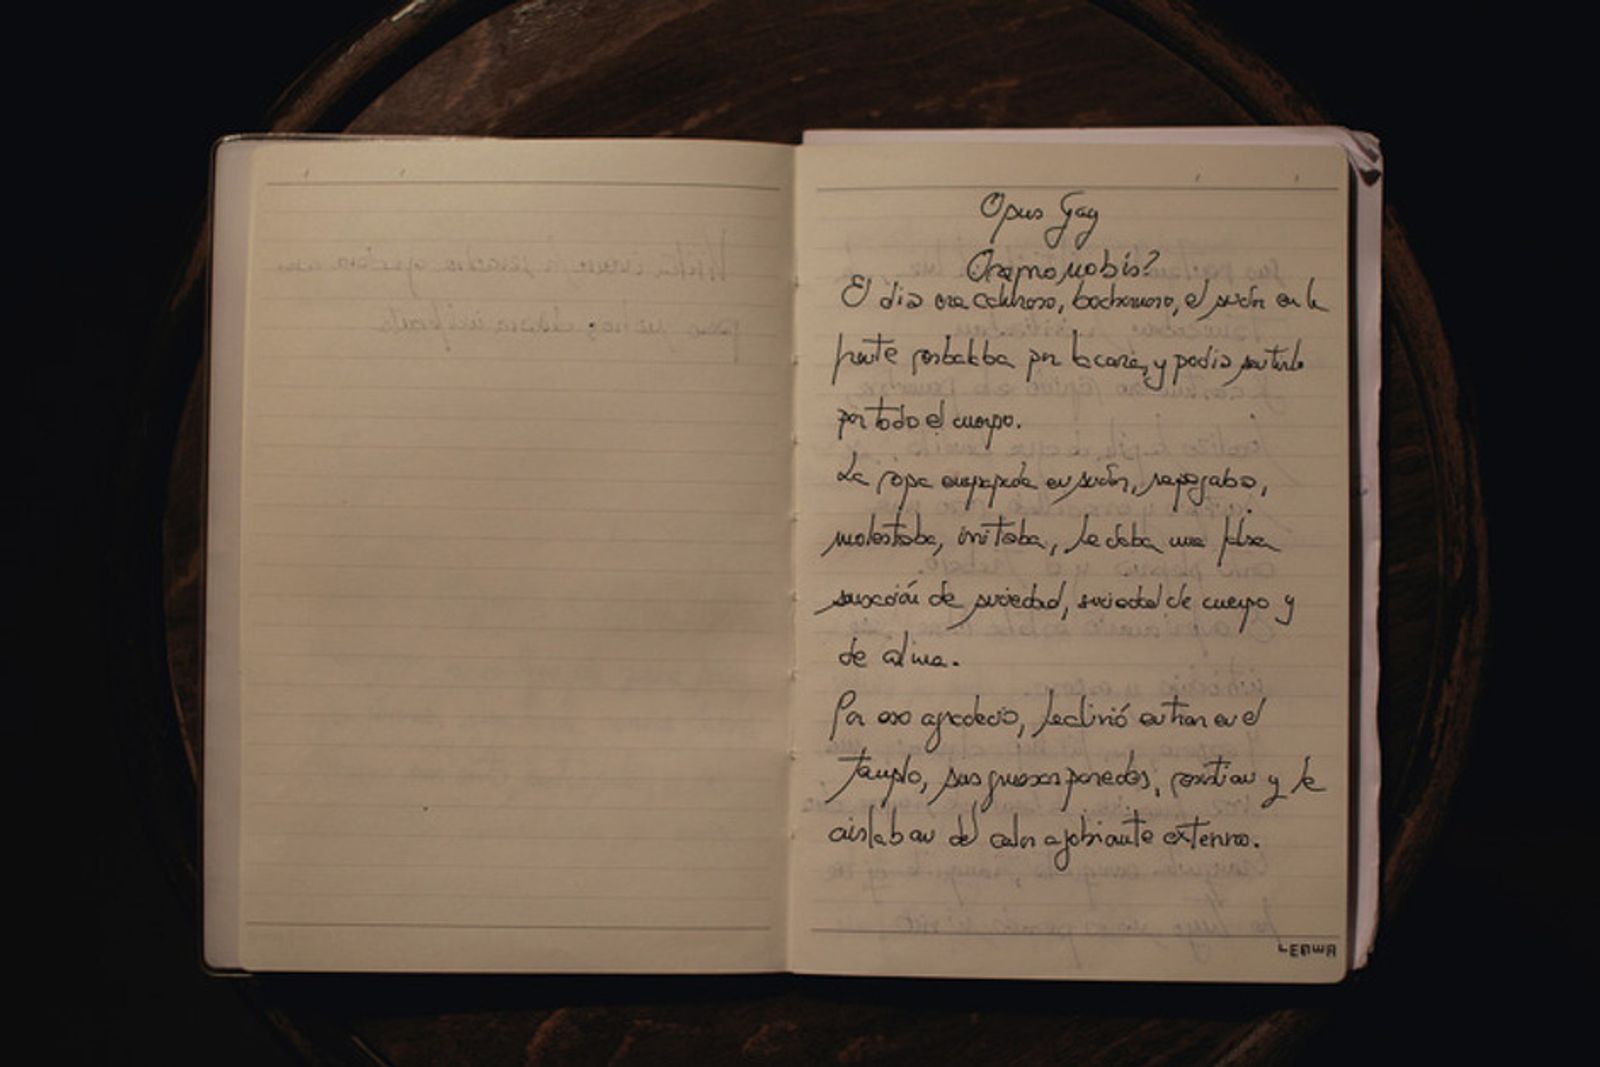 Opus Gay
Ora pro nobis?
El día era caluroso, bochornoso, el sudor en la
frente resbalaba por la cara, y podía sentirlo
por todo el cuerpo.
La ropa empapada en sudor, se pegaba,
molestaba, irritaba, le daba una falsa
sensación de suciedad, suciedad de cuerpo y
de alma.
Por eso agradeció, le alivió entrar en el
templo, sus gruesas paredes, resistían y le
aislaban del calor agobiante externo.
LEDWA